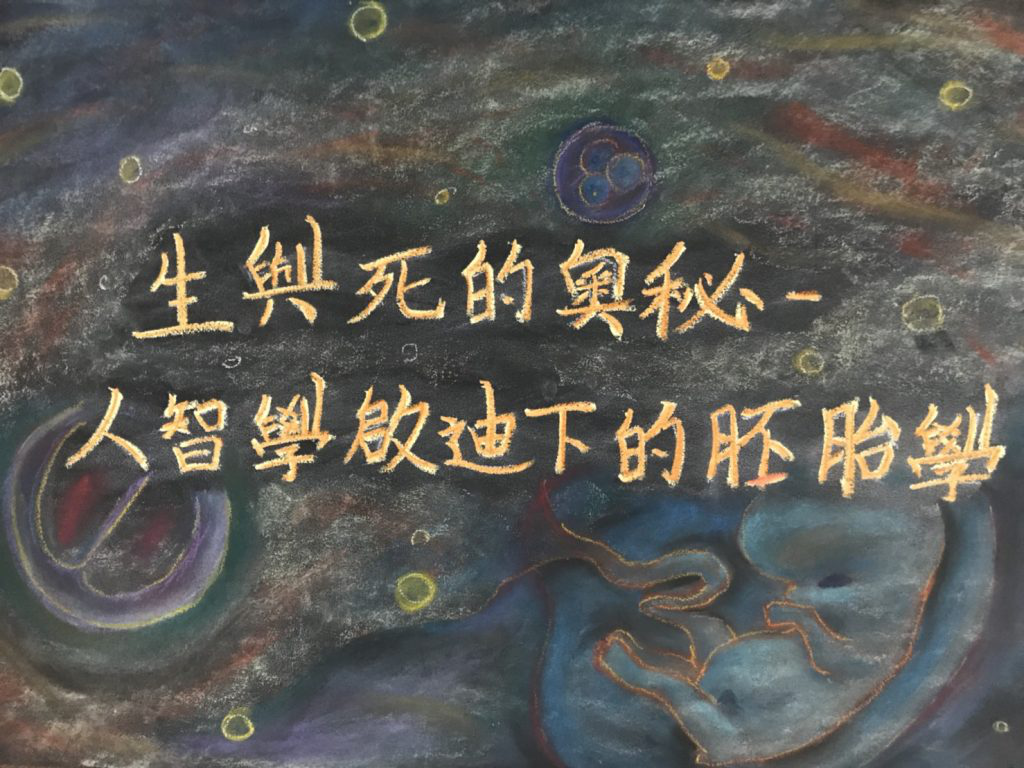 生與死的奧秘-
人智學啟迪下的胚胎學